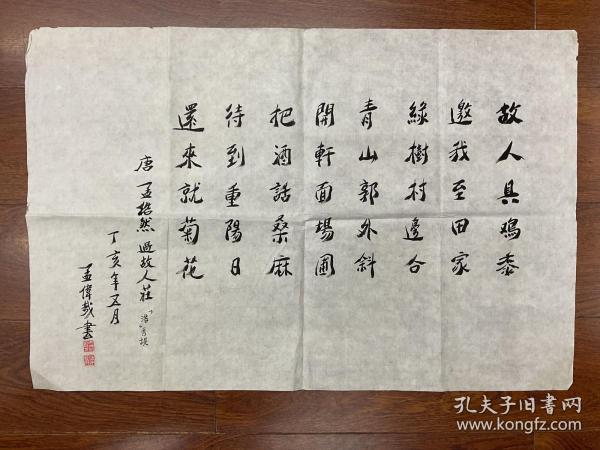 故人具鸡黍
邀我至田家
綠樹村邊合
青山郭外斜
開軒面場圃
把酒話桑麻
待到重陽日
還來就菊花
唐 孟浩然 過故人莊
丁亥年五月
孟偉哉書
孔夫子旧書网
www.kongfz.com